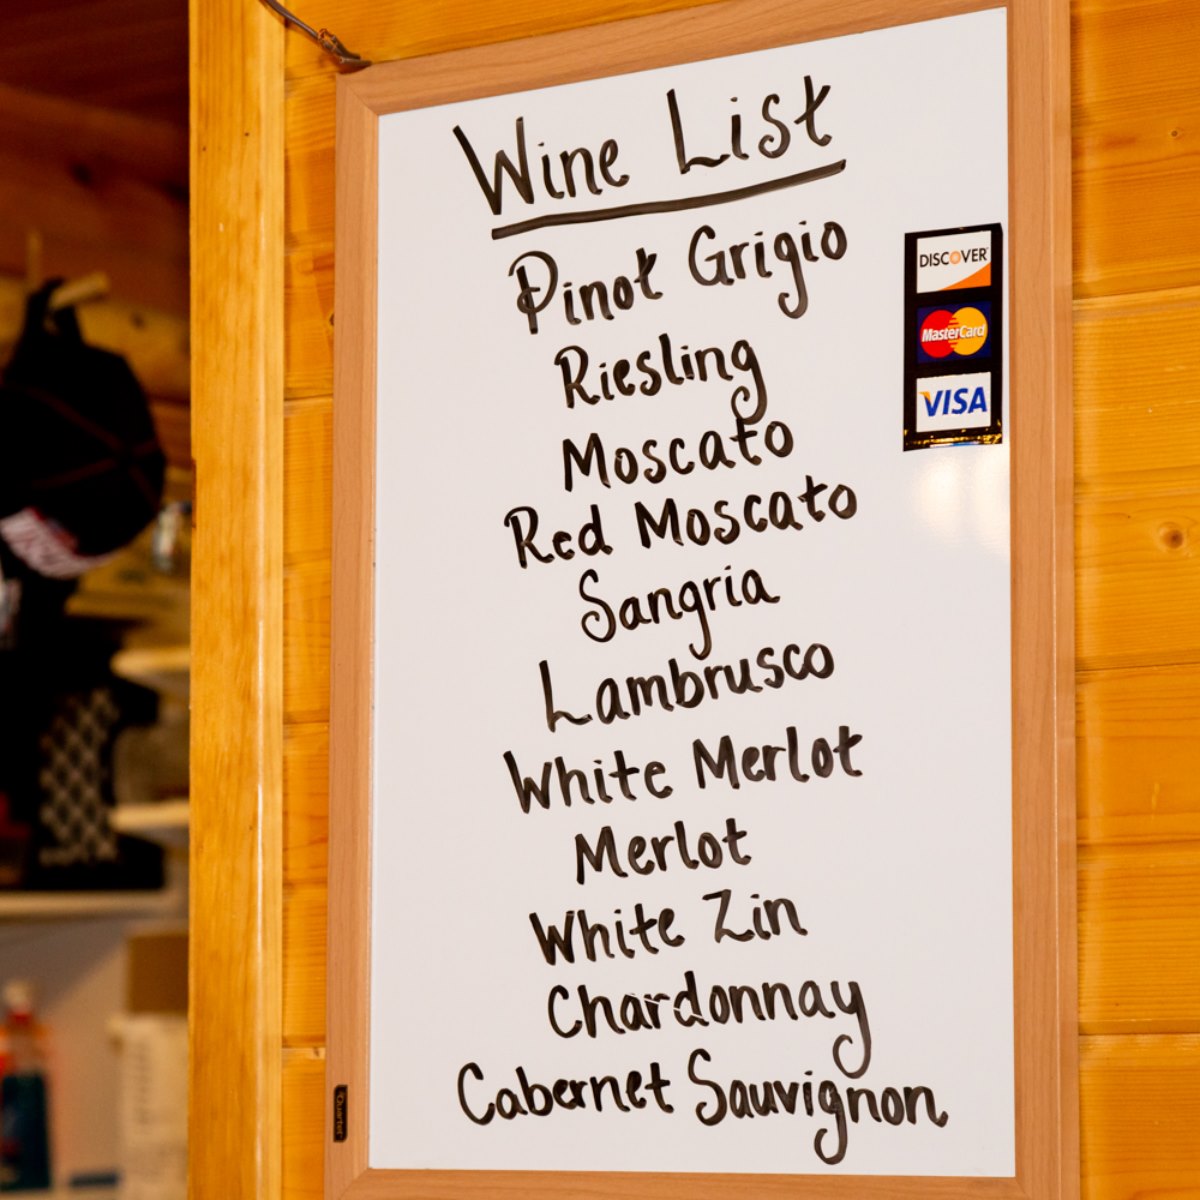 Wine List
Pinot Grigio
Riesling
Moscato
Red Moscato
Sangria
Lambrusco
White Merlot
Merlot
White Zin
Chardonnay
Cabernet Sauvignon
DISCOVER
MasterCard
VISA
Quartet